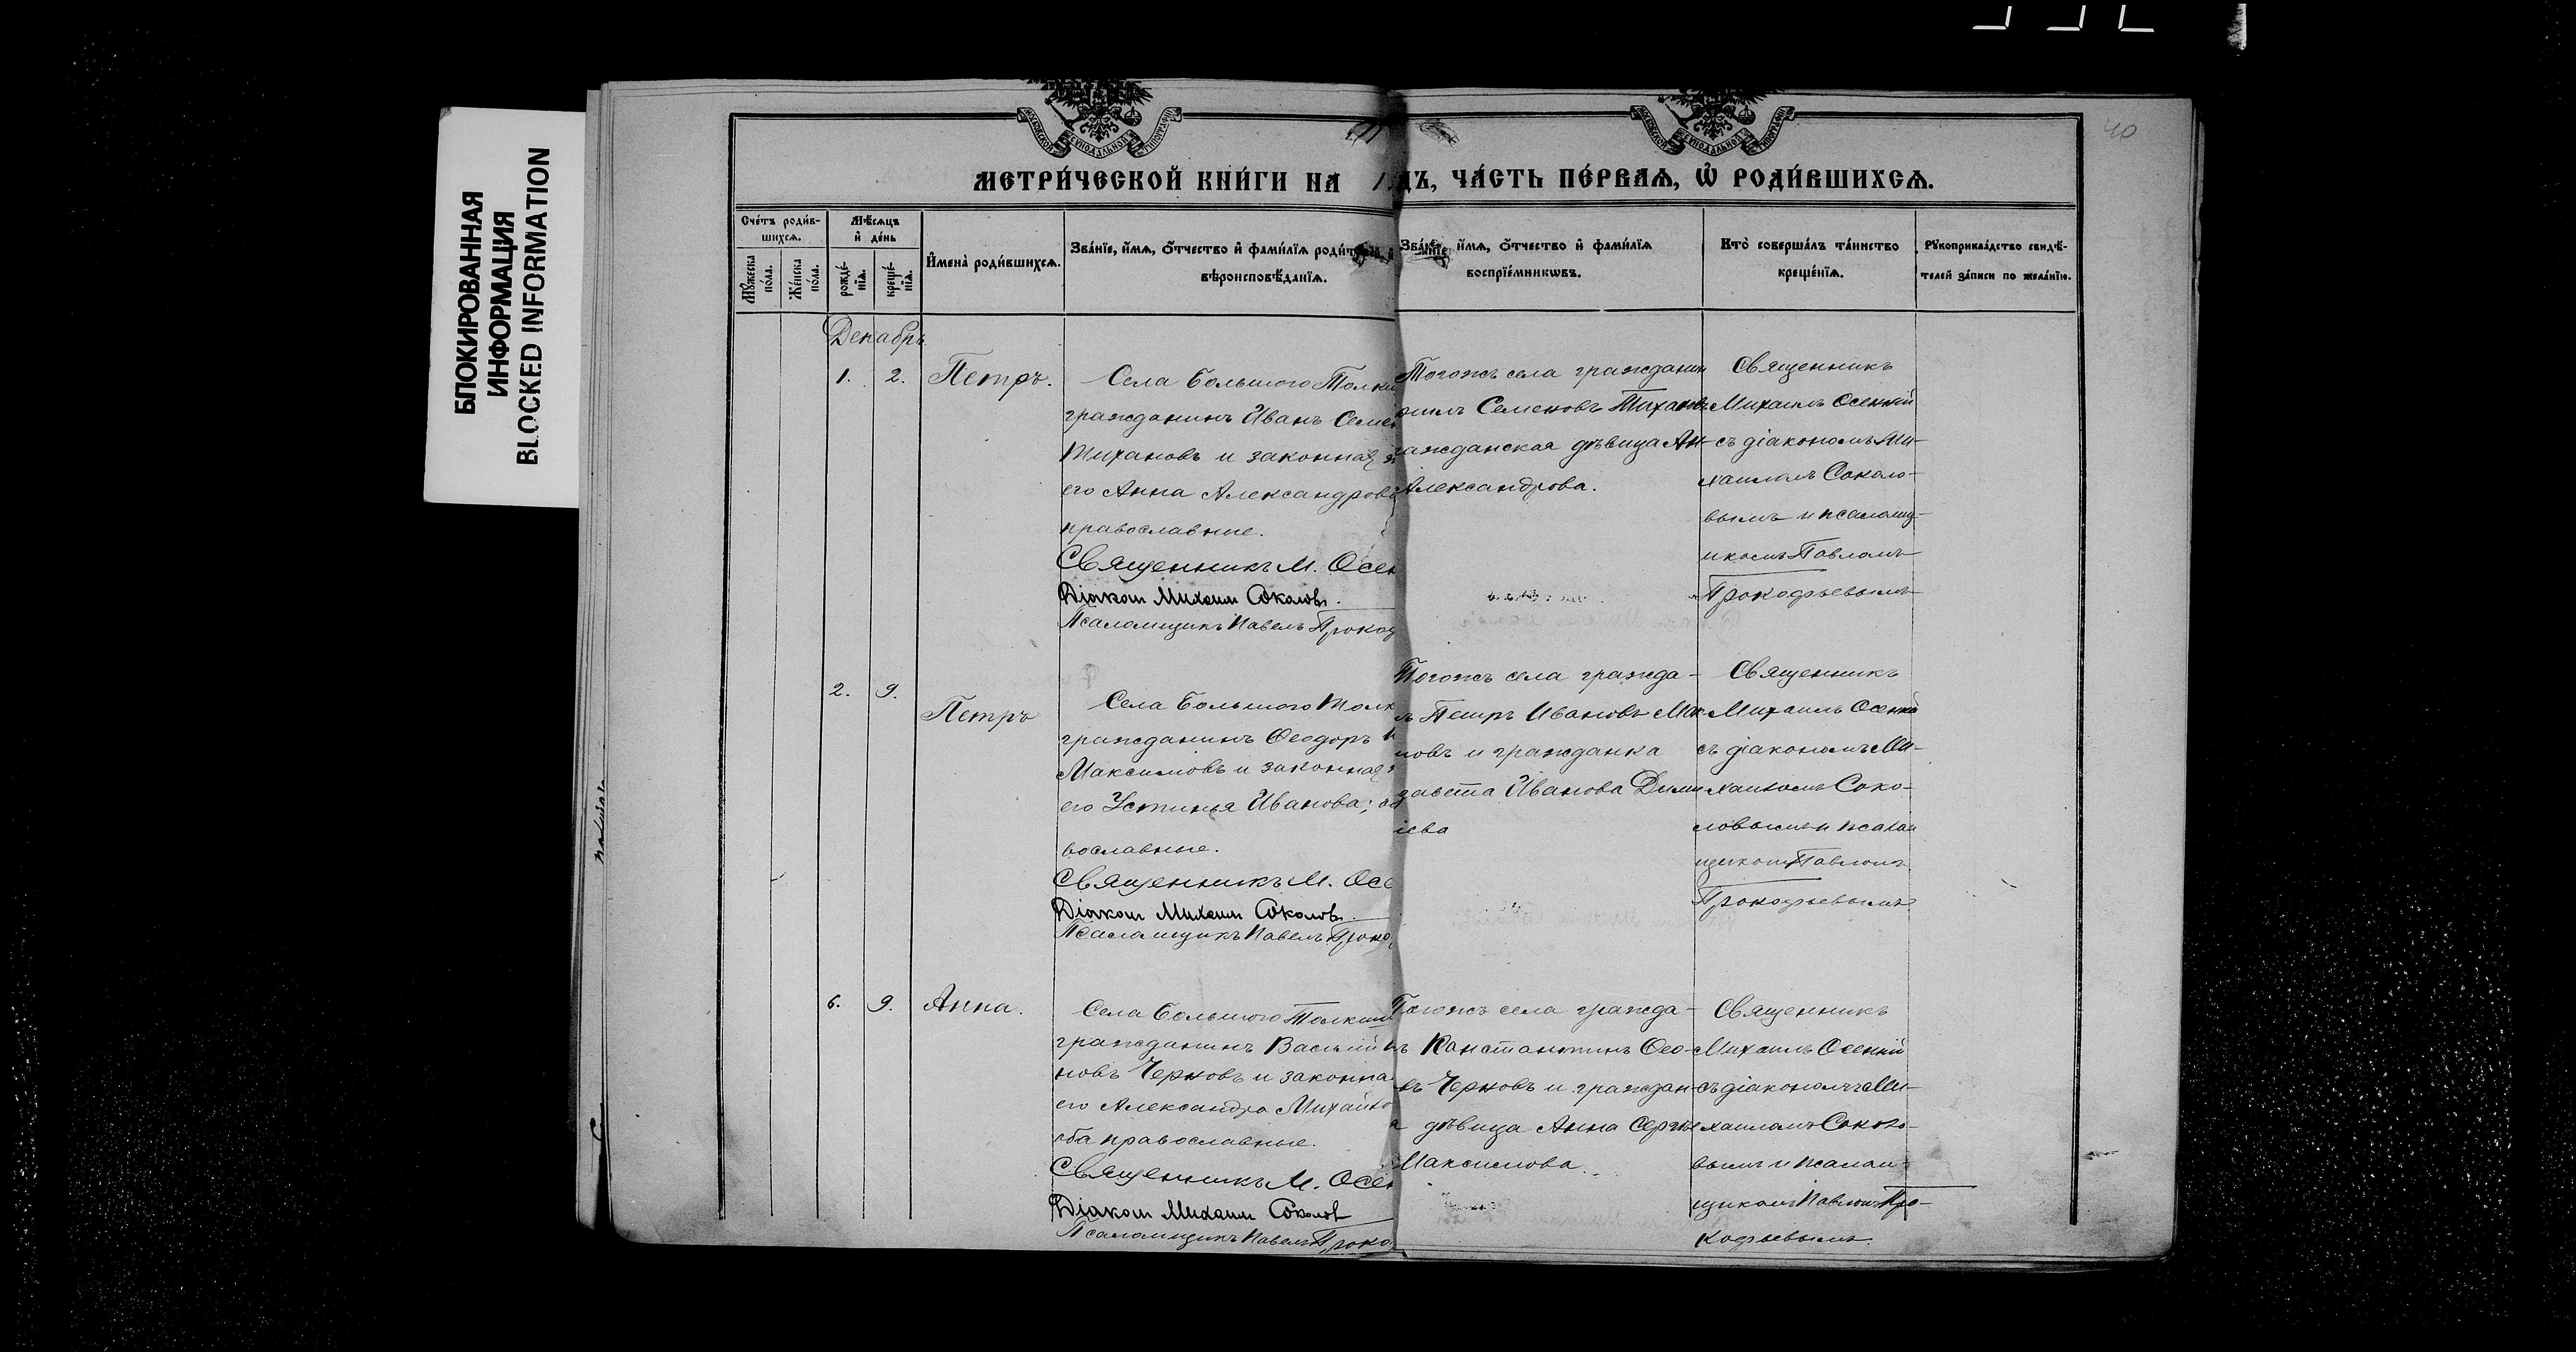 БЛОКИРОВАННАЯ
ИНФОРМАЦИЯ
BLOCKED INFORMATION
40
МОСКОВСКОЙ СѴНОДАЛЬНОЙ ТИПОГРАФІИ
МОСКОВСКОЙ СѴНОДАЛЬНОЙ ТИПОГРАФІИ
МЕТРИ́ЧЕСКОЙ КНИ́ГИ НА 1
ДЪ, ЧА́СТЬ ПЕ́РВАѦ, Ѽ РОДИ́ВШИХСѦ.
Сче́тъ роди́в-
шихсѧ.
Мꙋ́жеска
по́ла.
Же́нска
по́ла.
Мѣ́сѧцъ
и҆ де́нь
рожде́-
нїѧ.
креще́-
нїѧ.
И҆мена̀ роди́вшихсѧ.
Зва́нїе, и҆́мѧ, ѻ҆́тчество и҆ фами́лїѧ роди́
вѣроисповѣ́данїѧ.
Зва́нїе, и҆́мѧ, ѻ҆́тчество и҆ фами́лїѧ
воспрїе́мникѡвъ.
Кто̀ соверша́лъ та́инство
креще́нїѧ.
Рꙋкоприкла́дство свидѣ́-
телей за́писи по жела́нїю.
Декабрь
1. 2. Петръ.
Села Большого Толки
гражданинъ Иванъ Семен
Тихановъ и законная ж
его Анна Александров
православные.
Священникъ М. Осен
Діаконъ Михаилъ Соколовъ.
Псаломщикъ Павелъ Прокоф
Тогожъ села гражданин
Семеновъ Тихановъ
ражданская дѣвица Ан-
Александрова.
Священникъ
Михаилъ Осенній
съ діакономъ Ми-
хаиломъ Соколо-
вымъ и псаломщ-
икомъ Павломъ
Прокофьевымъ
2. 9. Петръ
Села Большого Толк
гражданинъ Ѳеодоръ И
Максимовъ и законная ж
его Устинья Иванова; об
вославные.
Священникъ М. Осе
Діаконъ Михаилъ Соколовъ.
Псаломщикъ Павелъ Проко
Тогожъ села гражда-
ъ Петръ Ивановъ Мак-
мовъ и гражданка
завета Иванова Дими
іева
Священникъ
Михаилъ Осенній
съ діакономъ Ми-
хаиломъ Соко-
ловымъ и псалом
щикомъ Павломъ
Прокофьевымъ
6. 9. Анна.
Села Большого Толкиш
гражданинъ Василій И
новъ Черновъ и законна
его Александра Михайло
оба православные.
Священникъ М. Осен
Діаконъ Михаилъ Соколовъ
Псаломщикъ Павелъ Проко
Тогожъ села гражда-
ъ Константинъ Ѳео-
въ Черновъ и граждан-
а дѣвица Анна Сергѣе
Максимова.
Священникъ
Михаилъ Осенній
съ діакономъ Ми-
хаиломъ Соколо-
вымъ и псалом-
щикомъ Павломъ Про-
кофьевымъ.